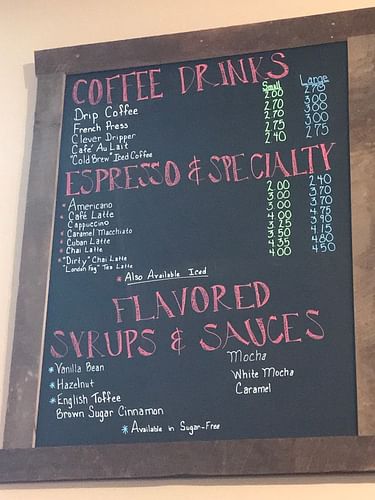 COFFEE DRINKS
Small Large
Drip Coffee 2.00
French Press 2.70 3.00
Clever Dripper 2.70 3.00
Café Au Lait 2.75 3.00
"Cold Brew" Iced Coffee 2.40 2.75
ESPRESSO & SPECIALTY
* Americano 2.00 2.40
* Café Latte 3.00 3.70
Cappuccino 3.00 3.70
* Caramel Macchiato 4.00 4.75
* Cuban Latte 3.25 3.90
* Chai Latte 3.50 4.15
* "Dirty" Chai Latte 4.35 4.80
"London Fog" Tea Latte 4.00 4.50
* Also Available Iced
FLAVORED
SYRUPS & SAUCES
* Vanilla Bean Mocha
* Hazelnut White Mocha
* English Toffee Caramel
Brown Sugar Cinnamon
* Available in Sugar-Free